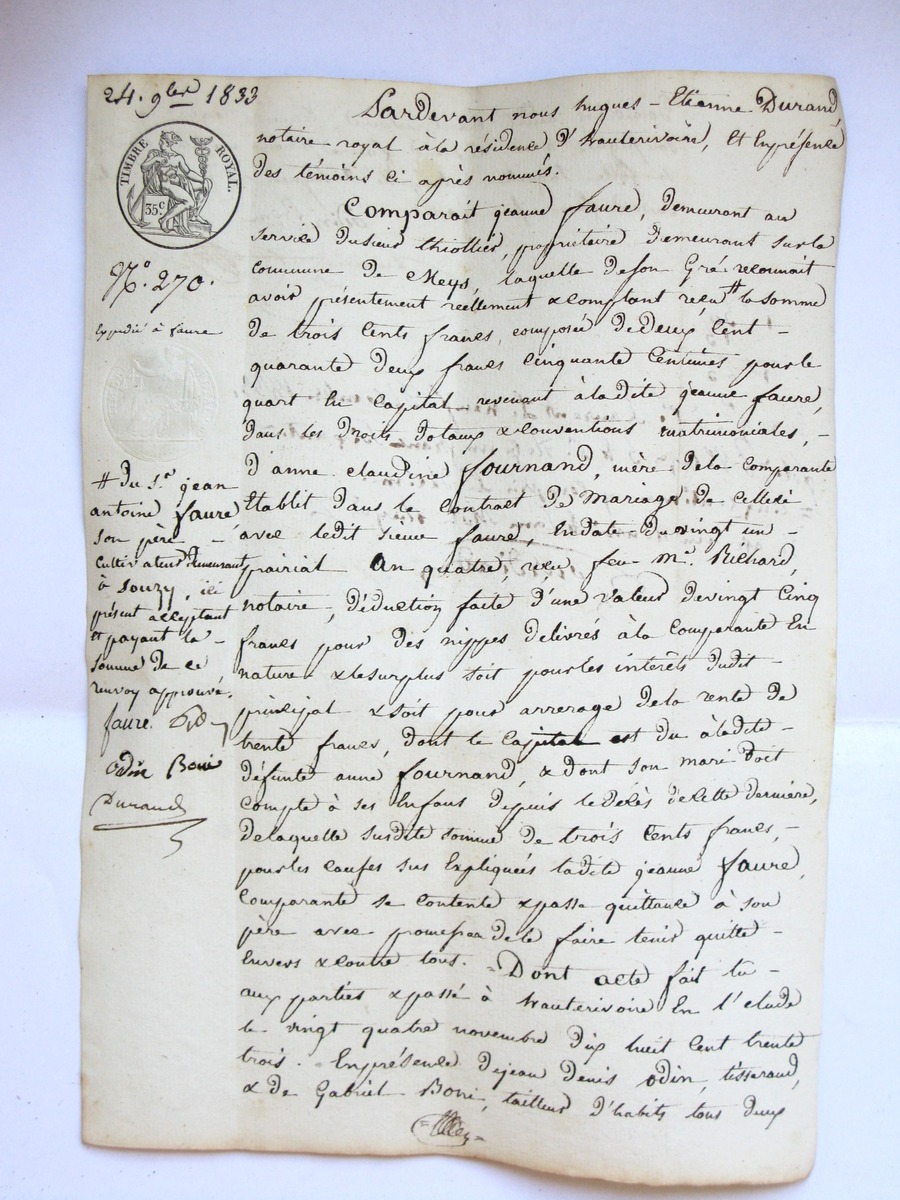 24. 9bre 1833
TIMBRE ROYAL.
35 c
N.º 270.
Expédié à faure
Pardevant nous hugues - Etienne Durand,
notaire royal à la résidence d'hauterivoire, Et Enprésence
des témoins ci après nommés.
Comparait jeanne faure, demeurant au
service dusieur thiollier, propriétaire demeurant sur la
commune de Meys, laquelle deson Gré reconnait
avoir présentement réellement & comptant reçu # la somme
de trois Cents francs, composée de deux Cent -
quarante deux francs Cinquante Centimes pour le
quart En Capital revenant àladite jeanne faure,
dans les droits dotaux & conventions matrimoniales, -
d'anne claudine fournand, mère dela comparante
Etablit dans le contract de mariage de celleci
avec ledit sieur faure, Endate duvingt un -
prairial an quatre, reçu feu Mr. Richard,
notaire, déduction faite d'une valeur devingt Cinq
francs pour des nippes délivrés àla Comparante En
nature & lesurplus soit pour les intérêts dudit -
principal & soit pour arrerage dela rente de
trente francs, dont le Capital est du àladite -
défunte anne fournand, & dont son mari doit
compte à ses Enfans depuis le décès decette dernière,
delaquelle susdite somme de trois Cents francs, -
pour les causes sus Expliquées ladite jeanne faure,
Comparante se contente & passe quittance à son
père avec promesse de le faire tenir quitte -
Envers & contre tous. - Dont acte fait lu -
aux parties & passé à hauterivoire En l'etude
le vingt quatre novembre dix huit Cent trente
trois. Enprésence dejean denis odin, tisserand,
& de Gabriel Boni, tailleur d'habits tous deux
# du Sr. jean
antoine faure
son père -
Cultivateur demeurant
à Souzy, ici
présent acceptant
et payant la -
somme de ce
renvoy approuvé.
faure.
odin Boni
Durand